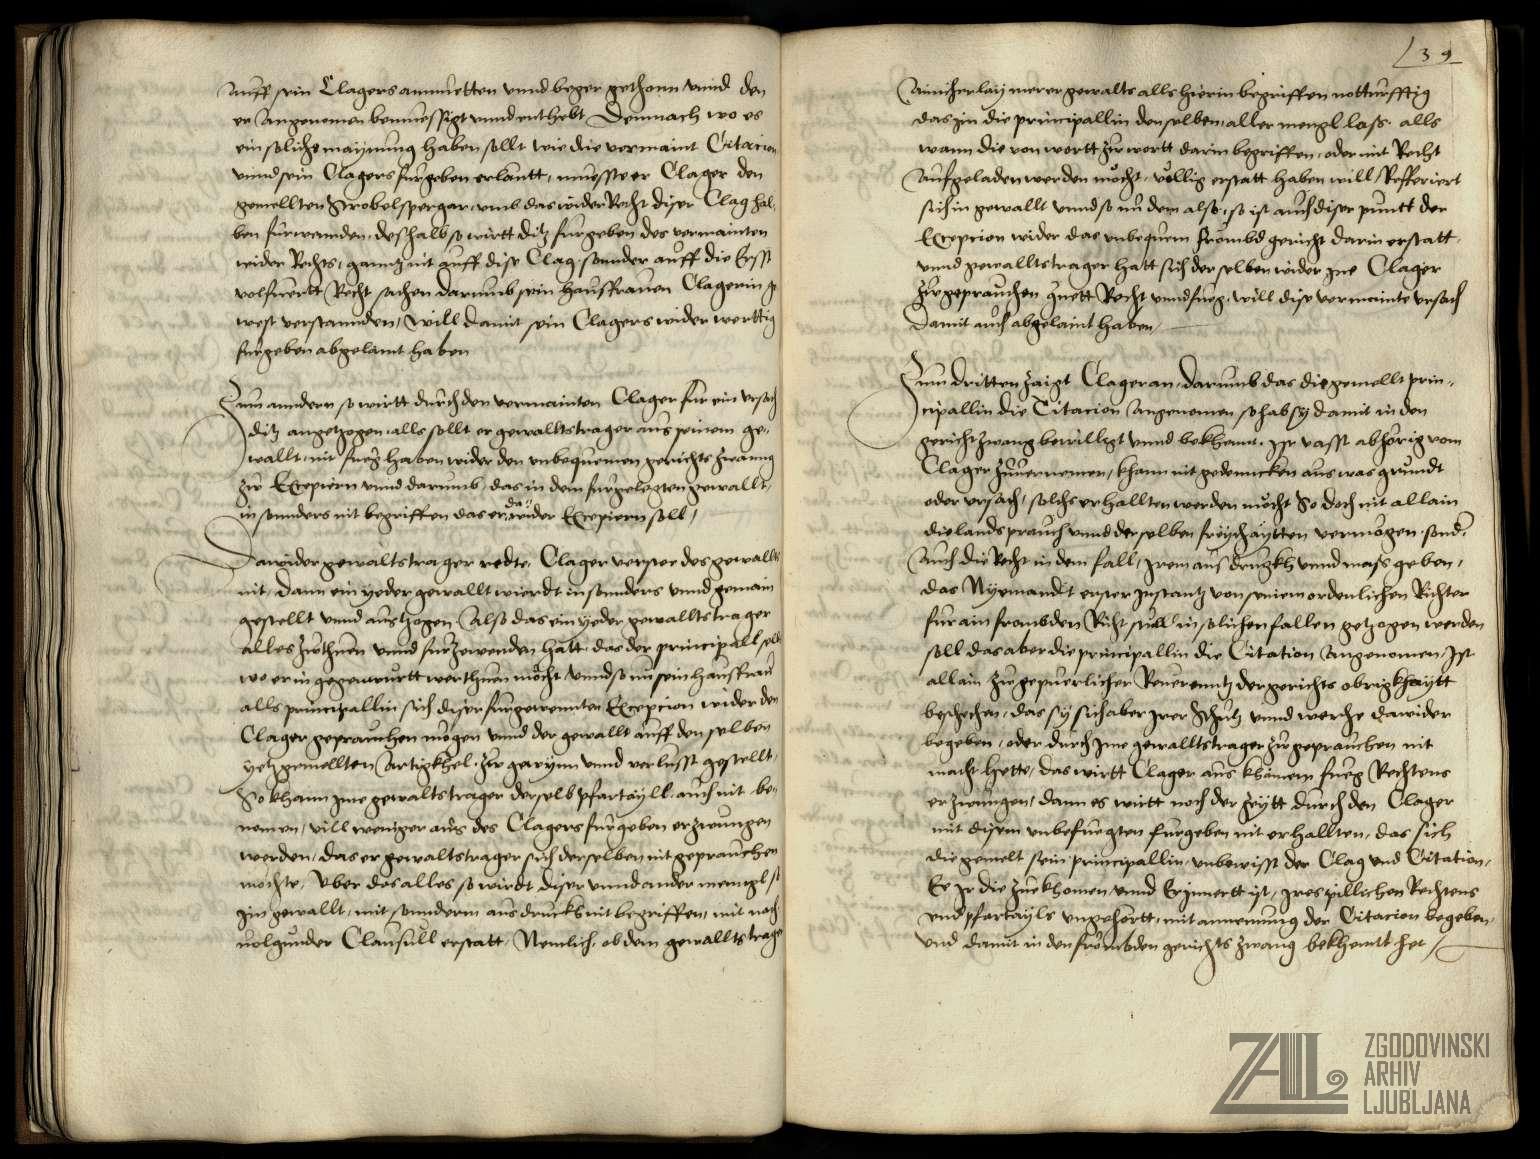 auff sein Clagers anmuetten vnnd beger gethonn vnnd den
er angenomen bemuessigt vnnd enthebt Demnach wo es
ein soliche maynung haben sollt wie die vermaint Citacion
vnnd sein Clagers furgeben erlautt, muesste er Clager den
gemellten Strobelspergar, vmb das wider Recht diser Clag hal-
ben furwennden, deshalb so wirtt ditz furgeben des vermainten
wider Rechts, ganntz nit auff dise Clag sonnder auff die Erst
volfuertt Recht sachen darumb sein hausfrauen Clagerin ge
west verstannden, Will damit sein Clagers wider werttig
furgeben abgelaint haben
Zum anndern so wirtt durch den vermainten Clager fur ein vrsach
ditz angetzogen, alls sollt er gewaltstrager aus seinem ge-
wallt, nit fueg haben wider den vnbequemen gerichts zwanng
zu Excipiern vnnd darumb, das in dem furgelegten gewallt,
in sonnders nit begriffen das er, da wider Excipiern soll,
Dawider gewaltstrager redte, Clager verstee des gewallts
nit, Dann ein yeder gewallt wierdt in sonnders vnnd gemain
gestellt vnnd austzogen Also das ein yeder gewalltstrager
alles zuthuen vnnd furzewenden hatt, das der principall selbs
wo er in gegenwurtt wer thuen mocht, vnnd so nu sein hausfrau
alls principallin sich diser furgewennten Excepcion wider den
Clager geprauchen mögen vnnd der gewallt auff den selben
yetz gemellten Artigkhel, zu gewynn vnnd verlusst gestellt,
So khann jme gewaltstrager derselb pfartayll, auch nit be-
nomen, vill weniger aus des Clagers furgeben erzwungen
werden, das er gewaltstrager sich derselben nit geprauchen
mochte, Vber das alles so wirdt diser vnnd ander menngl so
jm gewallt, mit sonnderm ausdruckh nit begriffen, mit nach
uolgunder Clausull erstatt, Nemlich, ob dem gewalltstrager
39
ainicherlay merer gewalts alls hierin begriffen notturfftig
das jm die principallin denselben, aller menngl lass, alls
wann die von wortt zu wortt darin begriffen, oder mit Recht
aufgeladen werden mocht, völlig erstatt haben will, Refferiert
sich in gewallt vnnd so nu dem also, so ist auch diser puntt der
Excepcion wider das vnbequem frömbd gericht darin erstatt,
vnnd gewalltstrager hatt sich derselben wider jne Clager
zu geprauchen guett Recht vnnd fueg, will dise vermainte vrsach
damit auch abgelaint haben,
Zum dritten zaigt Clager an, darumb das die gemellt prin-
cipallin die Citacion angenomen so hab sy damit in den
gericht zwang bewilligt vnnd bekhennt, Ist vasst abhörig vom
Clager zuuernemen, khann nit gedenncken aus was grundt
oder vrsach, solchs erhallten werden mocht So doch nit allain
die lanndsprauch vnnd derselben freyhaytten vermögen, sond,
Auch die Recht in dem fall, jrem ausdrugkh vnnd mass geben,
das Nyemandt erster Instantz von seinem ordenlichen Richter
fur ain frombden Richt stull in solichen fallen getzogen werden
soll das aber die principallin die Citation angenomen, Ist
allain zu gepuerlicher Reuerenntz der gerichts obrigkhaytt
beschehen, das sy sich aber jrer Schutz vnnd werche dawider
begeben, oder durch jme gewalltstrager zu geprauchen nit
macht hette, das wirtt Clager aus khainem fueg Rechtens
erzwingen, dann es wirtt noch der zeytt durch den Clager
mit disem vnbefuegten furgeben nit erhallten, das sich
die gemelt sein principallin, vnbewisst der Clag vnd Citation,
Ee jr die zuekhomen, vnnd Erynnertt ist, jres pillichen Rechtens
vnd pfartayls vngehörtt, mit annemung der Citacion begeben,
vnd damit in den frömbden gerichts zwang bekhenntt het,
ZAL
ZGODOVINSKI
ARHIV
LJUBLJANA